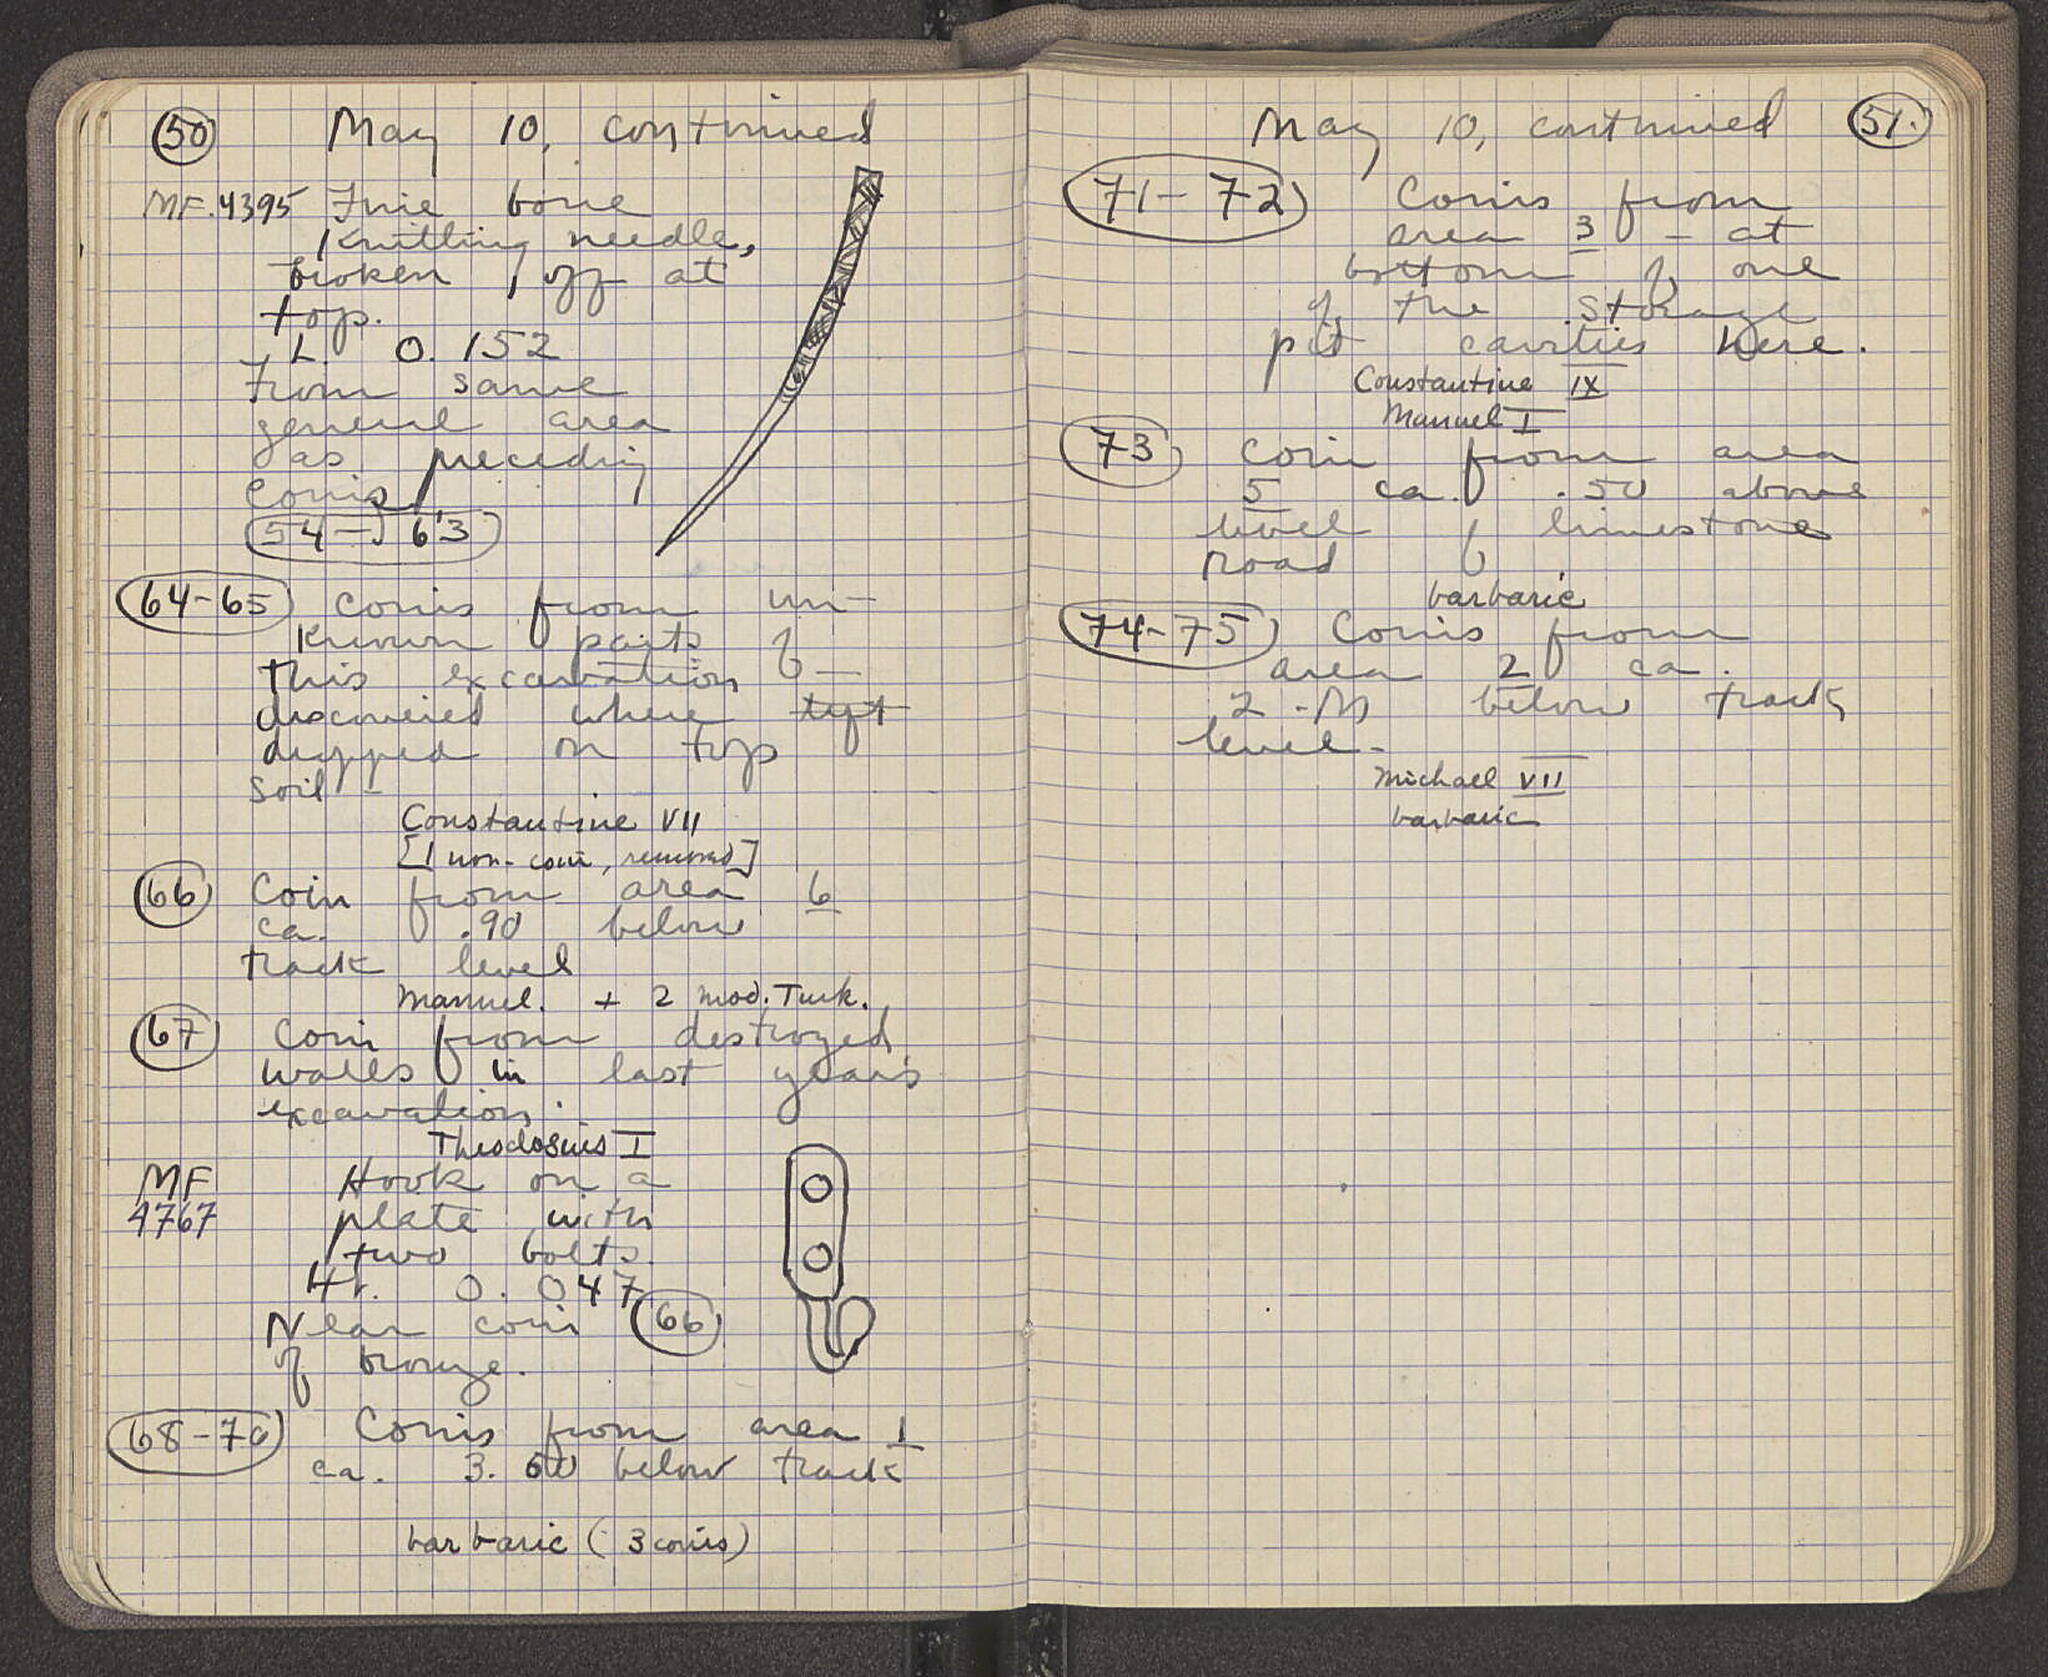 50 May 10, continued
MF. 4395 Fine bone
knitting needle,
broken off at
top.
L. 0.152
From same
general area
as preceding
coins
54-63
64-65 Coins from un-
known parts of
this excavation —
discovered where
dumped on top
soil -
Constantine VII
[1 non-coin, removed]
66 Coin from area 6
ca. .90 below
track level
Manuel. + 2 mod. Turk.
67 Coin from destroyed
walls in last year's
excavation.
Theodosius I
MF Hook on a
4767 plate with
two bolts.
Ht. 0.047
Near coin 66
of bronze.
68-70 Coins from area 1
ca. 3.60 below track
barbaric (3 coins)
May 10, continued 51.
71-72 Coins from
area 3 - at
bottom of one
of the storage
pit cavities here.
Constantine IX
Manuel I
73 Coin from area
5 ca. .50 above
level of limestone
road
barbaric
74-75 Coins from
area 2 ca.
2.M below track
level-
Michael VII
barbaric